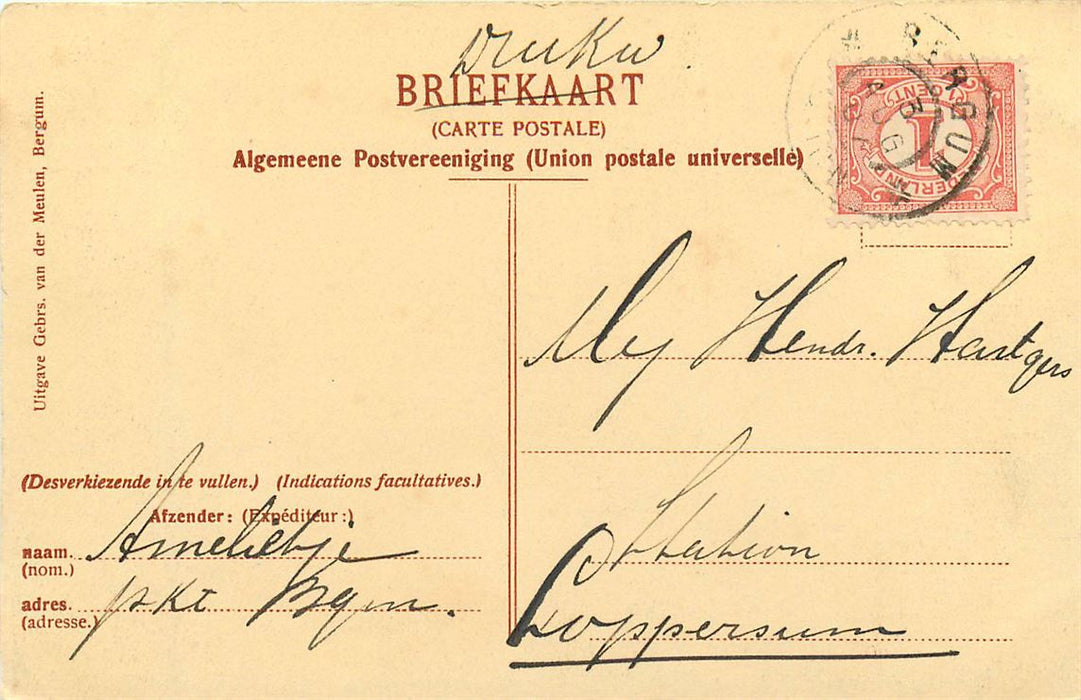 BRIEFKAART
(CARTE POSTALE)
Algemeene Postvereeniging (Union postale universelle)
BERGUM
1 CENT
NEDERLAND
Uitgave Gebrs. van der Meulen, Bergum.
Mej Hendr. Hartgers
Station
Loppersum
(Desverkiezende in te vullen.) (Indications facultatives.)
Afzender: (Expéditeur:)
naam. Ameliétje
(nom.)
adres. pkt Bgm.
(adresse.)